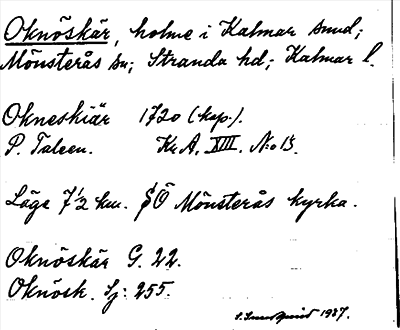 Oknöskär, holme i Kalmar sund;
Mönsterås sn; Stranda hd; Kalmar l.
Okneskiär 1720 (kop.).
P. Talsen. Kr.A. XIII. N:o 15.
Läge 7½ km. SÖ Mönsterås kyrka.
Oknöskär G. 22.
Oknösk. Sj: 255.
1937.